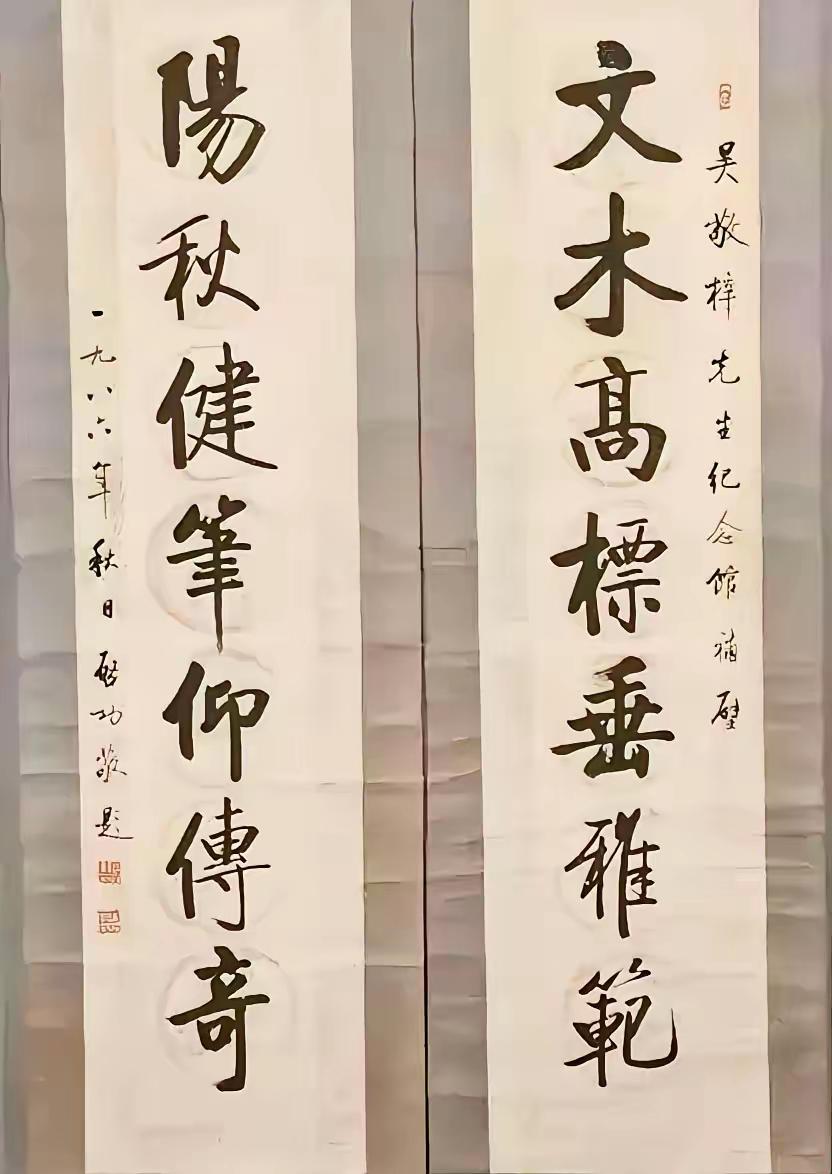 吴敬梓先生纪念館補壁
文木高標垂雅範
陽秋健筆仰傳奇
一九八六年秋日啓功敬題